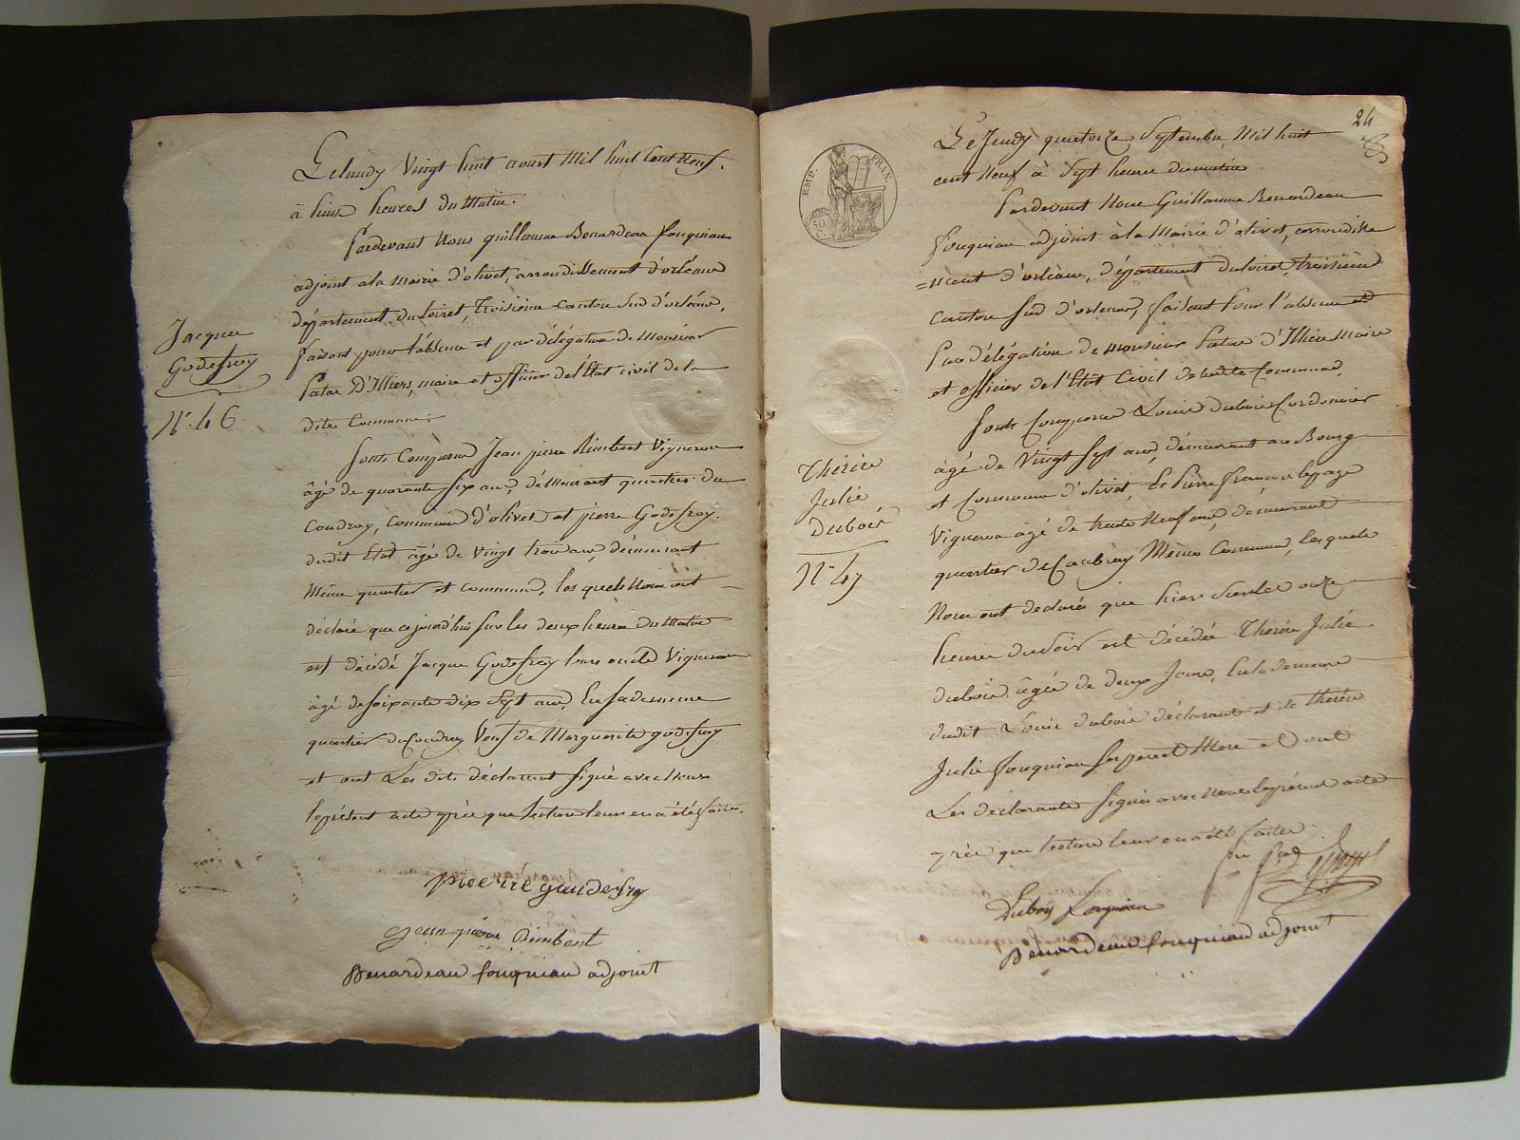 Jacque
Godefroy
N.º 46
Le lundy vingt huit aoust mil huit cent neuf.
à huit heures du matin.
Pardevant nous guillaume Benardeau fouquiau
adjoint a la mairie d'olivet, arrondissement d'orléans
département du Loiret, troisieme canton sud d'orléans,
faisant pour l'absence et par délégation de monsieur
Patas D'Illiers, maire et officier de l'Etat civil de la
dite Commune.
Sont Comparu Jean pierre Rimbert Vigneron
âgé de quarante six ans, démeurant quartier du
Coudray, commune d'olivet et pierre Godefroy.
dudit Etat âgé de vingt trois ans, démeurant
même quartier et commune, les quels nous ont
déclaré que cejourd'hui sur les deux heures du matin
est décédé Jacque Godefroy leur oncle Vigneron
âgé de soixante dix sept ans, En sa demeure
quartier du Coudray Veuf de Marguerite godefroy
et ont Les dits déclarant signé avec nous
le présent acte après que lecture leur en a été faite.
pieerre gaudefroy
jean pierre Rimbert
Benardeau fouquiau adjoint
24
EMP. FRAN.
Thérèse
Julie
Dubois
N.º 47
Le Jeudy quatorze Septembre Mil huit
cent neuf à Sept heure du matin
Pardevant Nous Guillaume Benardeau
fouquiau adjoint à la Mairie d'olivet, arrondisse
=ment d'orléans, département du loiret, troisieme
canton sud d'orleans, faisant pour l'absence et
par délégation de monsieur Patas d'Illiers Maire
et officier de l'Etat Civil de ladite Commune.
Sont Comparu Louis dubois Cordonnier
âgé de vingt sept ans, démeurant au Bourg
et Commune d'olivet, et Pierre françois lepage
Vigneron âgé de trente neuf ans, demeurant
quartier de Même Commune, lesquels
Nous ont declarés que hier sur les onze
heures du soir est décédée Thérèse Julie
dubois, âgée de deux Jours, En la demeure
dudit Louis dubois déclarant et de thérèse
Julie fouquiau ses pere et Mere et ont
Les déclarants signés avec nous le présent acte
après que lecture leur en a été faite.
Dubois fouquiau
Benardeau fouquiau adjoint